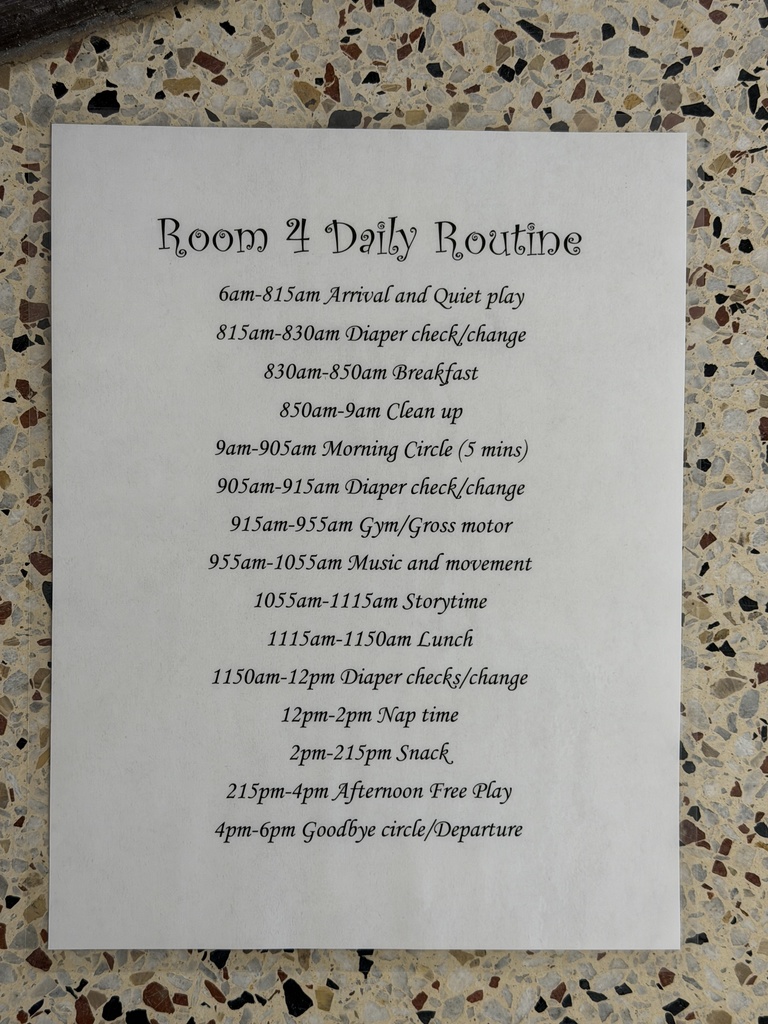 Room 4 Daily Routine
6am-815am Arrival and Quiet play
815am-830am Diaper check/change
830am-850am Breakfast
850am-9am Clean up
9am-905am Morning Circle (5 mins)
905am-915am Diaper check/change
915am-955am Gym/Gross motor
955am-1055am Music and movement
1055am-1115am Storytime
1115am-1150am Lunch
1150am-12pm Diaper checks/change
12pm-2pm Nap time
2pm-215pm Snack
215pm-4pm Afternoon Free Play
4pm-6pm Goodbye circle/Departure